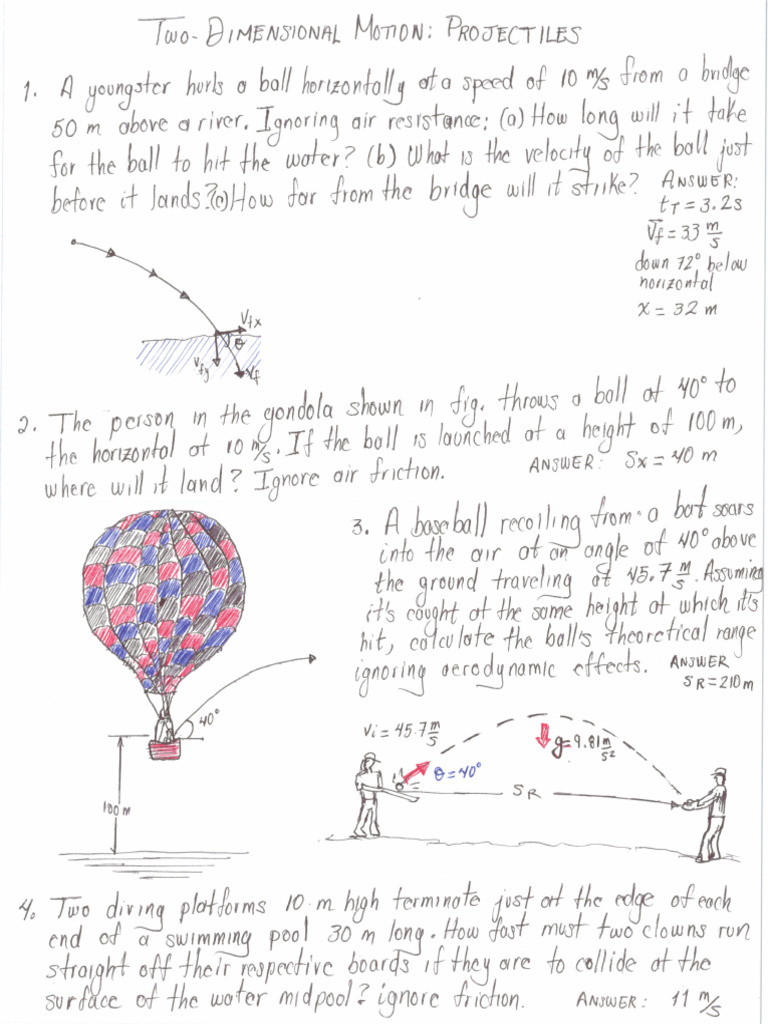 TWO-DIMENSIONAL MOTION: PROJECTILES
1. A youngster hurls a ball horizontally at a speed of 10 m/s from a bridge
50 m above a river. Ignoring air resistance: (a) How long will it take
for the ball to hit the water? (b) What is the velocity of the ball just
before it lands? (c) How far from the bridge will it strike? ANSWER:
tT = 3.2s
Vf = 33 m/s
down 72° below
horizontal
x = 32 m
Vfx
θ
Vfy
Vf
2. The person in the gondola shown in fig. throws a ball at 40° to
the horizontal at 10 m/s. If the ball is launched at a height of 100 m,
where will it land? Ignore air friction. ANSWER: Sx = 40 m
40°
100 m
3. A baseball recoiling from a bat soars
into the air at an angle of 40° above
the ground traveling at 45.7 m/s. Assuming
it's caught at the same height at which it's
hit, calculate the ball's theoretical range
ignoring aerodynamic effects. ANSWER
SR = 210 m
Vi = 45.7 m/s
g = 9.81 m/s²
θ = 40°
SR
4. Two diving platforms 10 m high terminate just at the edge of each
end of a swimming pool 30 m long. How fast must two clowns run
straight off their respective boards if they are to collide at the
surface of the water midpool? ignore friction. ANSWER: 11 m/s